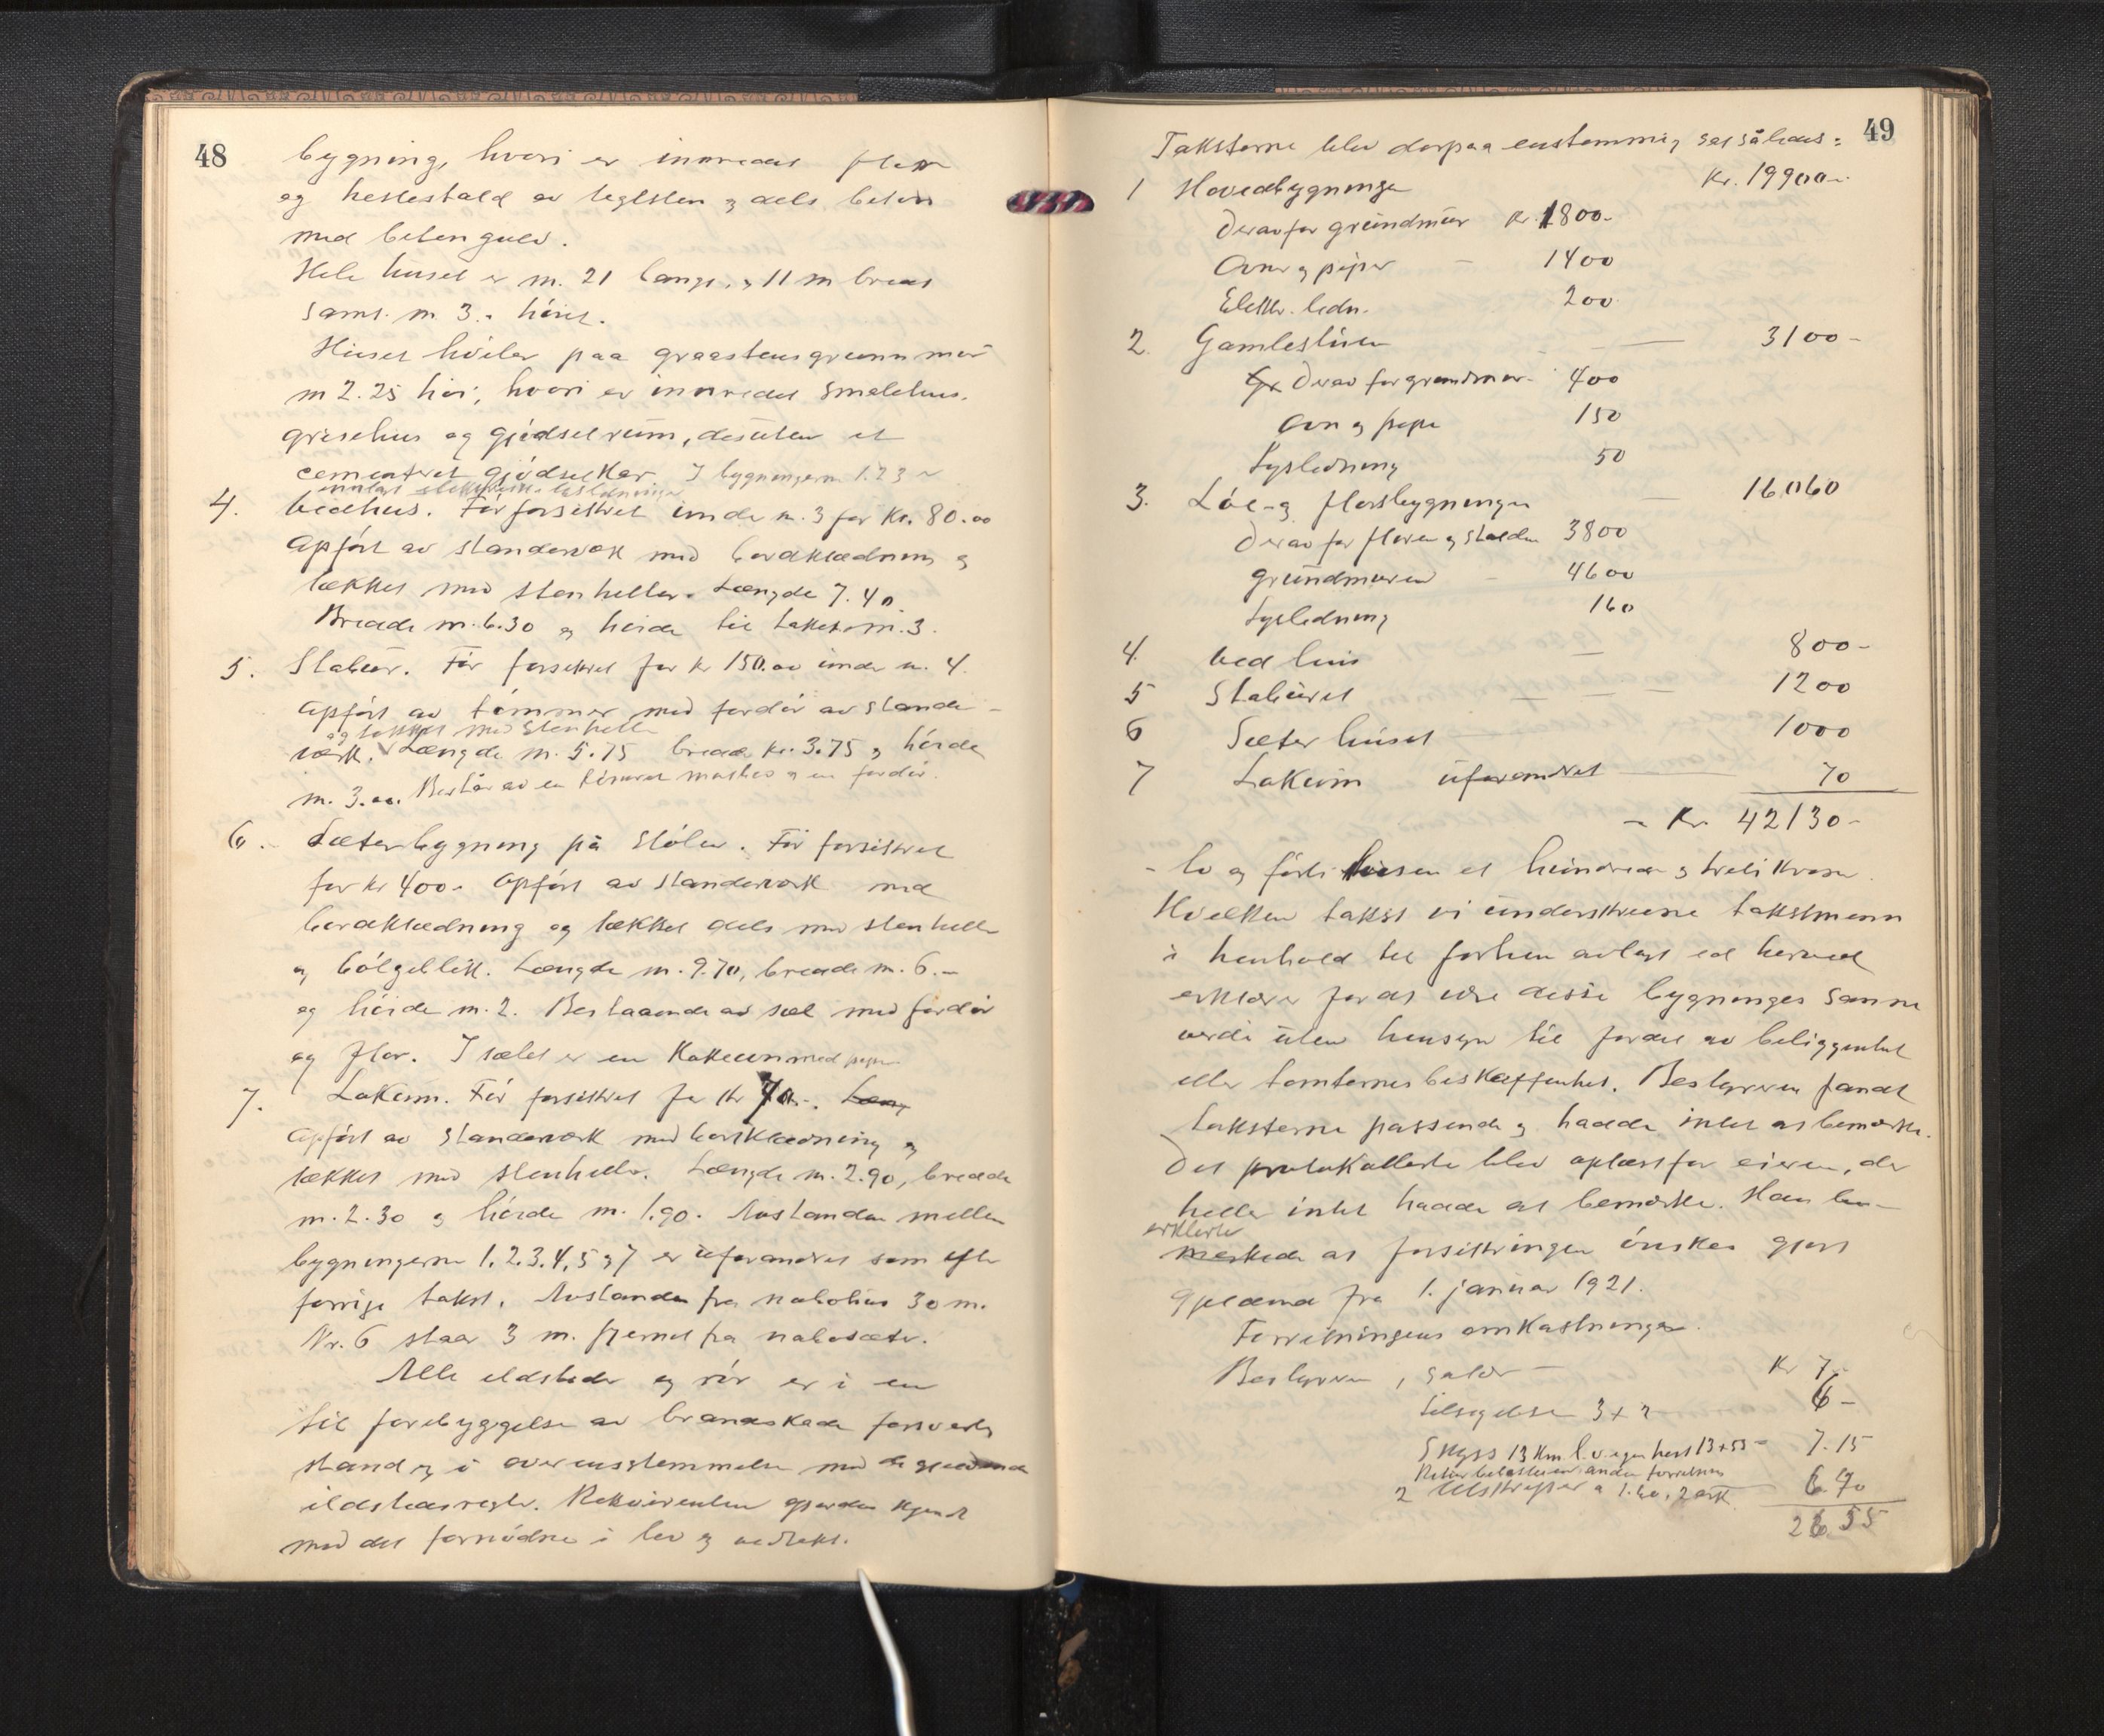 48
bygning, hvori er innredet flor
og hestestald av teglsten og dels beton
med betongulv.
Hele huset er m. 21 langt, og 11 m bredt
samt m. 3.- høit.
Huset hviler paa graastensgrunnmur
m 2.25 høi, hvori er innredet smalehus,
grisehus og gjødselrum, desuten et
cementeret gjødselkar. I bygningerne 1.2.3 er
innlagt elektriske lysledninger
4. Vedhus. Før forsikret under n. 3 for Kr. 80.00
Opført av standerverk med bordklædning og
tækket med stenheller. Længde 7.40
Bredde m. 6.30 og høide til taket m. 3.
5. Stabur. Før forsikret for kr 150.00 under n. 4.
Opført av tømmer med fordør av stander-
og tækket med Stenheller
værk. Længde m. 5.75 bredde kr. 3.75 og høide
m. 3.00. Består av en tømret masstue og en fordør.
6. Sæterbygning på Stølen. Før forsikret
for kr 400.- Opført av standerverk med
bordklædning og tækket dels med stenheller
og bølgeblik. Længde m. 9.70, bredde m. 6.-
og høide m. 2. Bestaaende av sæl med fordør
og flor. I sælet er en Kokeovn med pipe
7. Lakum. Før forsikret for Kr 70.-. Læng
Opført av standerverk med bordklædning og
tækket med stenheller. Længde m. 2.90, bredde
m. 2.30 og høide m. 1.90. Avstanden mellem
bygningerne 1.2.3.4.5 og 7 er uforandret som efter
forrige takst. Avstanden fra nabohus 30 m.
Nr. 6 staar 3 m. fjernet fra nabosæter.
Alle ildsteder og rør er i en
til forebyggelse av brandskade forsvarlig
stand og i overensstemmelse med de gjeldende
ildstedsregler. Rekvirenten gjordes kjent
med det fornødne i lov og vedtekt.
49
Taksterne blev derpaa enstemmig sat således:
1 Hovedbygningen Kr. 19900.-
Derav for grundmur Kr. 1800.-
Ovner og piper - 1400
Elektr. ledn. 200
2. Gamlestuen 3100-
Gr Derav for grundmur - 400
Ovn og pipe 150
Lysledning 50
3. Løe- og florsbygningen 16060
Derav for floren og stalden 3800
grundmuren 4600
Lysledning 160
4. Ved hus 800-
5 Staburet 1200
6 Sæterhuset 1000
7 Lakum uforandret 70
- Kr. 42130-
- to og førti tusen et hundrede og treti kroner.
Hvilken takst vi underskrevne takstmenn
i henhold til forhen avlagt ed herved
erklærer for at være disse bygninges sanne
verdi uten hensyn til fordel av beliggenhet
eller tomternes beskaffenhet. Bestyreren fandt
taksterne passende og hadde intet at bemerke.
Det protokollerte blev oplæst for eieren, der
heller intet hadde at bemerke. Han be-
erklærte
merkede at forsikringen ønskes gjort
gjeldende fra 1. januar 1921.
Forretningens omkostninger.
Bestyreren, salær - Kr 7.-
tilsigelser 3 + 2 6-
Skyss 13 Km. l.v. egen hest 13 x 55 - 7.15
Retur belastes en anden forretning
2 utskrifter a 1.60, 2 ark 6.70
26.55